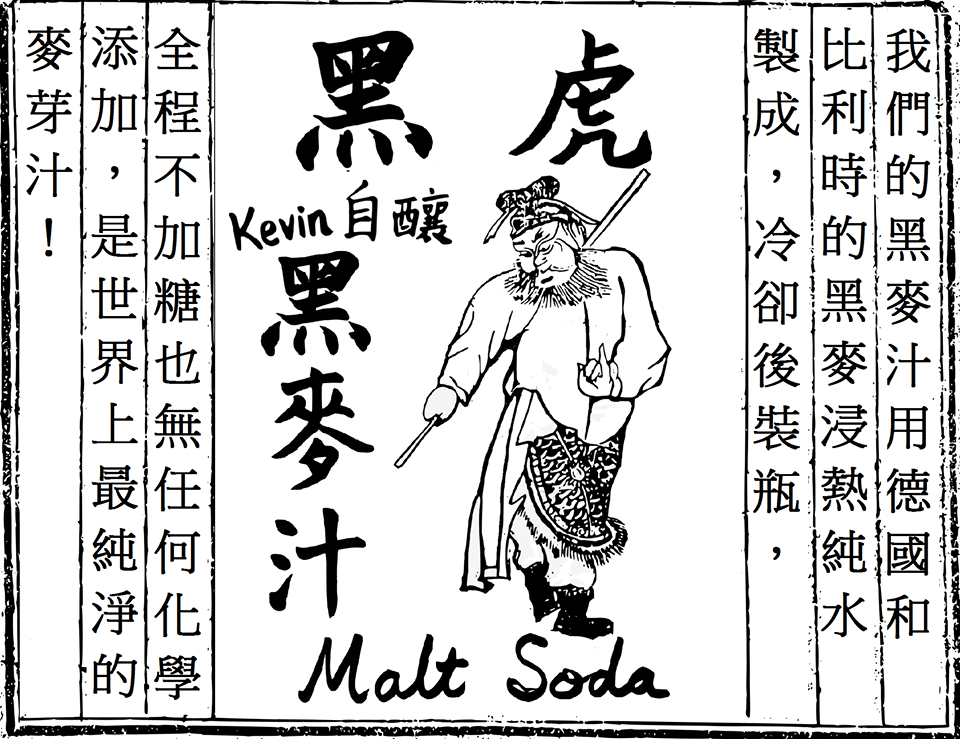 我們的黑麥汁用德國和
比利時的黑麥浸熱純水
製成，冷卻後裝瓶，
虎
黑
Kevin 自釀
黑麥汁
Malt Soda
全程不加糖也無任何化學
添加，是世界上最純淨的
麥芽汁！